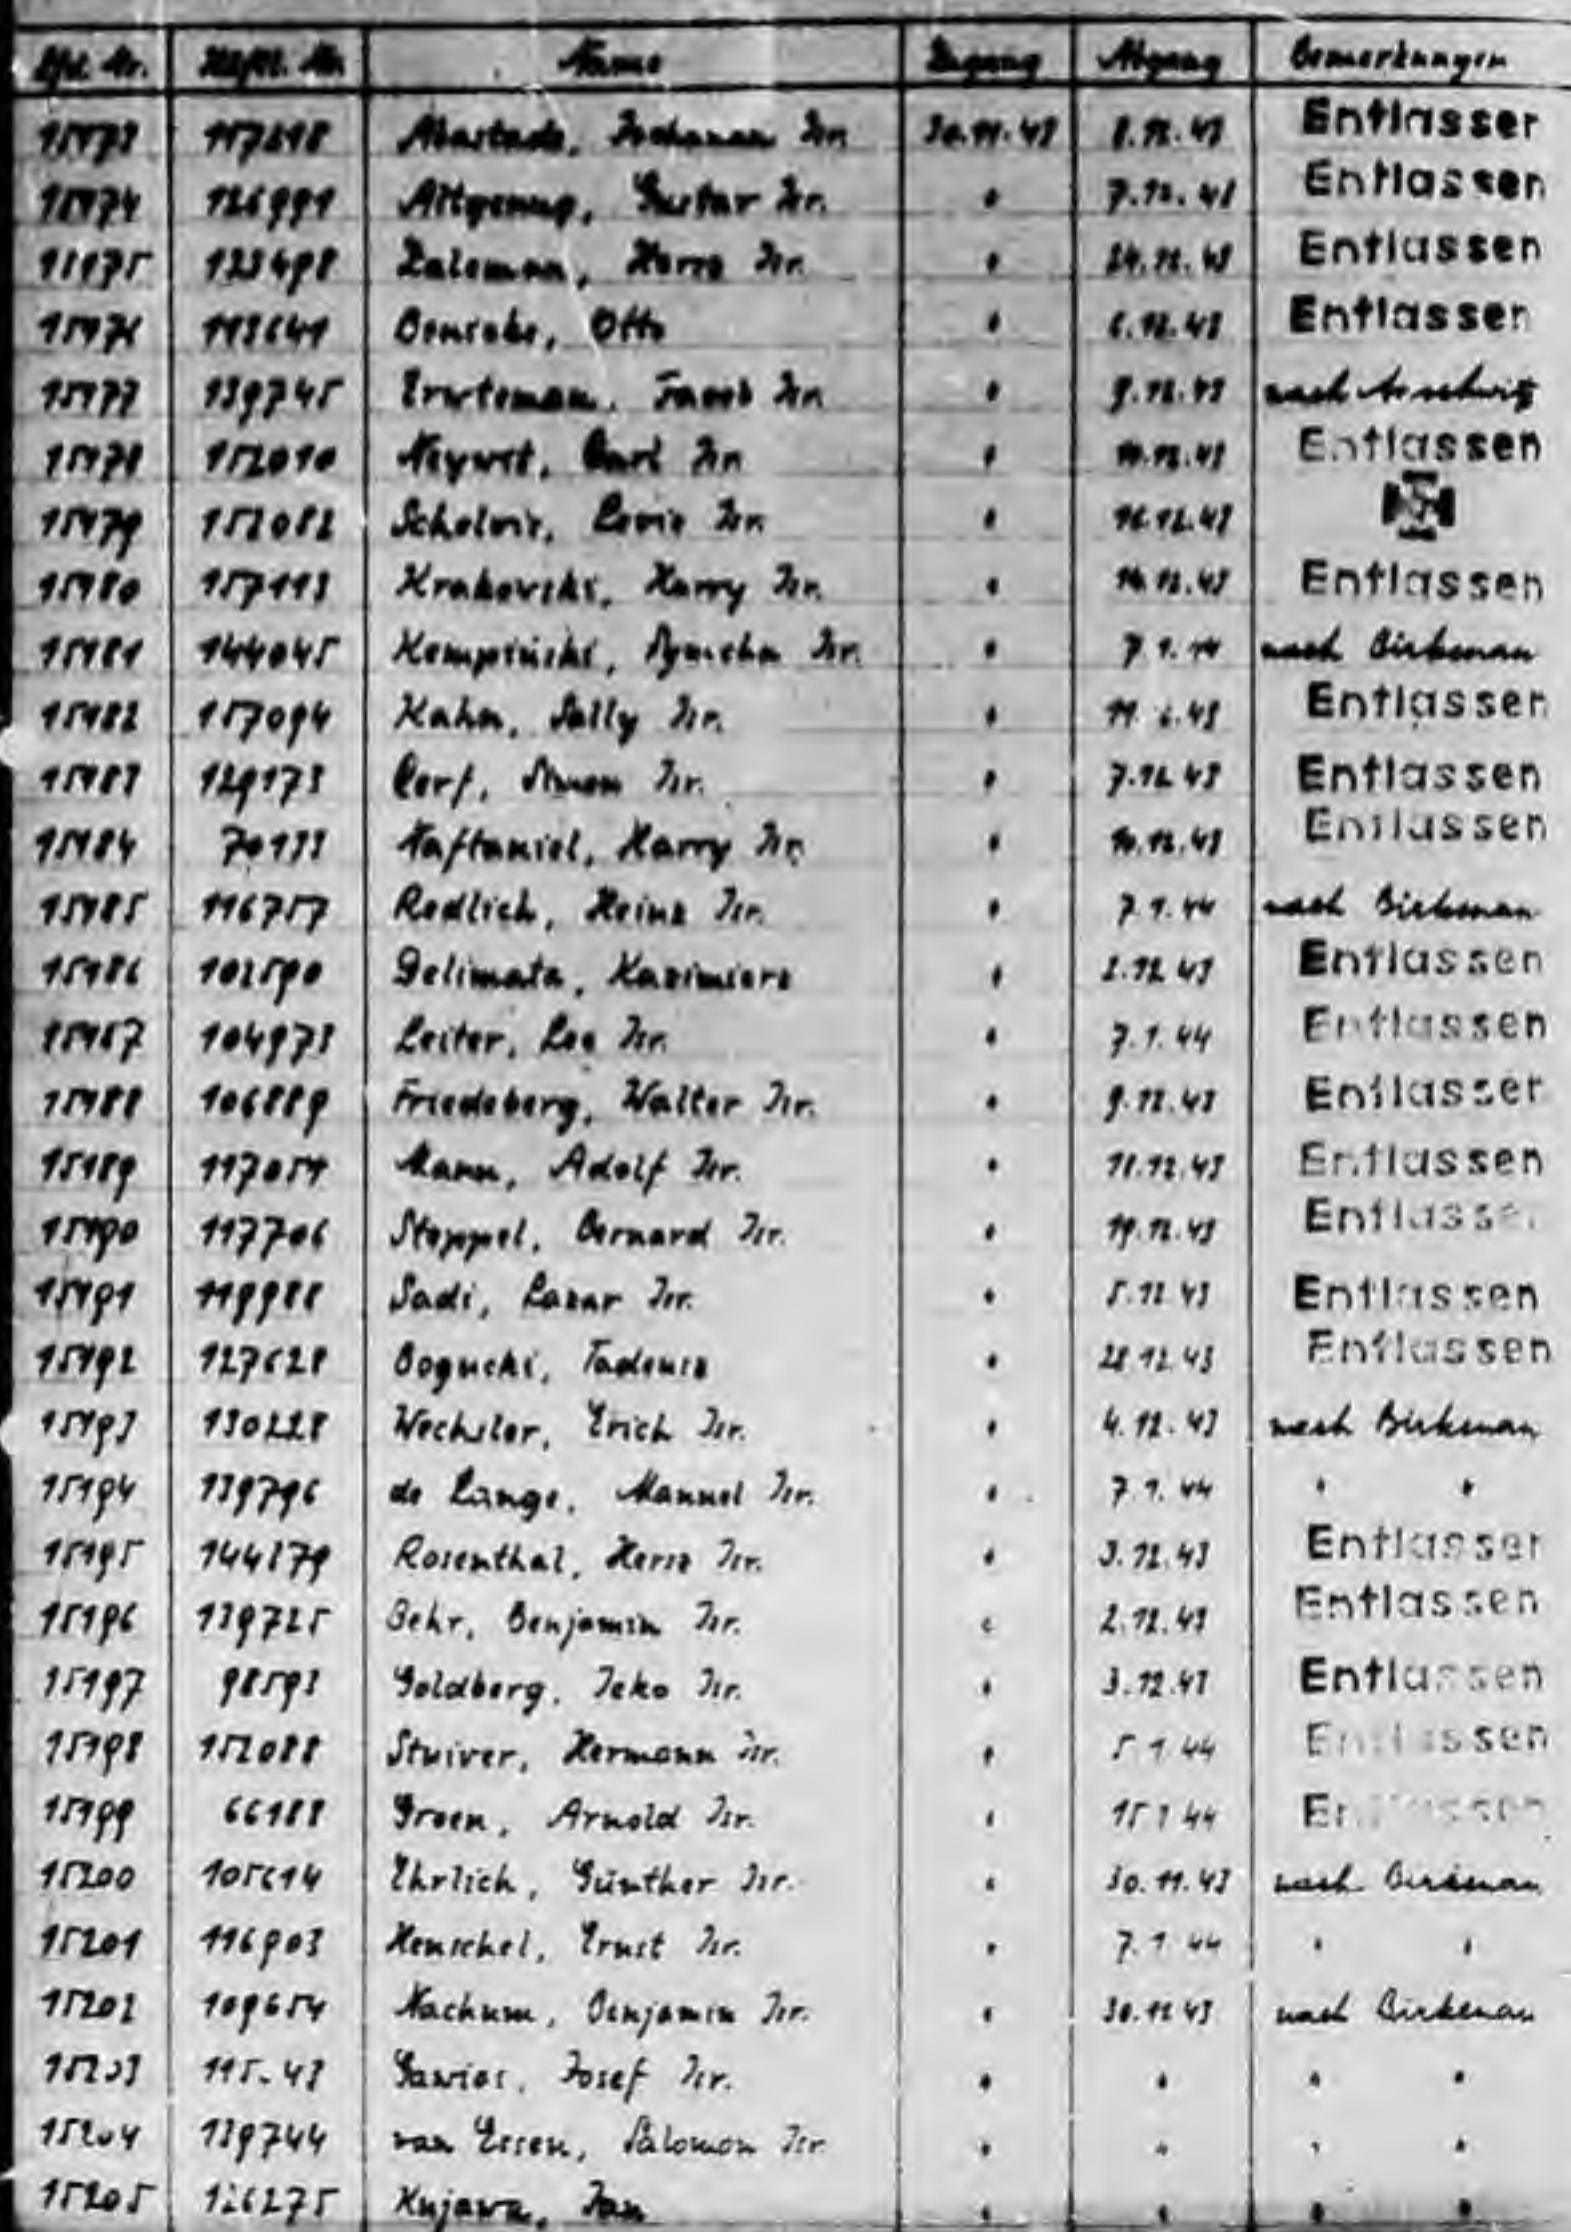 Lfd. Nr. Häftl. Nr. Name Zugang Abgang Bemerkungen
15173 117618 Isr. 30.11.43 8.12.43 Entlassen
15174 126991 Gustav Isr. " 7.12.43 Entlassen
15175 123498 Isr. " 24.12.43 Entlassen
15176 113641 Otto " 6.12.43 Entlassen
15177 139745 Jacob Isr. " 9.12.43 nach Auschwitz
15178 152010 Isr. " 10.12.43 Entlassen
15179 152082 Isr. " 16.12.43
15180 157113 Krakovski, Harry Isr. " 14.12.43 Entlassen
15181 144045 Kempiński, Isr. " 7.1.44 nach Birkenau
15182 157094 Kahn, Sally Isr. " Entlassen
15183 129173 Cerf, Simon Isr. " 7.12.43 Entlassen
15184 70133 Naftaniel, Harry Isr. " 10.12.43 Entlassen
15185 116757 Redlich, Heinz Isr. " 7.1.44 nach Birkenau
15186 102590 Delimata, Kazimierz " 2.12.43 Entlassen
15187 104973 Leiter, Leo Isr. " 7.1.44 Entlassen
15188 106889 Friedeberg, Walter Isr. " 9.12.43 Entlassen
15189 117054 Mann, Adolf Isr. " 11.12.43 Entlassen
15190 117706 Stoppel, Bernard Isr. " 19.12.43 Entlassen
15191 119988 Sadi, Lazar Isr. " 5.12.43 Entlassen
15192 127628 Bogucki, Tadeusz " 28.12.43 Entlassen
15193 130228 Wechsler, Erich Isr. " 4.12.43 nach Birkenau
15194 139796 de Lange, Manuel Isr. " 7.1.44 " "
15195 144279 Rosenthal, Hersz Isr. " 3.12.43 Entlassen
15196 139725 Behr, Benjamin Isr. " 2.12.43 Entlassen
15197 98593 Goldberg, Isr. " 3.12.43 Entlassen
15198 152088 Stuiver, Hermann Isr. " 5.1.44 Entlassen
15199 66188 Groen, Arnold Isr. " 15.1.44 Entlassen
15200 105614 Ehrlich, Günther Isr. " 30.11.43 nach Birkenau
15201 116903 Henschel, Ernst Isr. " 7.1.44 " "
15202 109654 Nachum, Benjamin Isr. " 30.11.43 nach Birkenau
15203 Josef Isr. " " " "
15204 139744 van Essen, Salomon Isr. " " " "
15205 126275 Kujawa, Jan " " " "